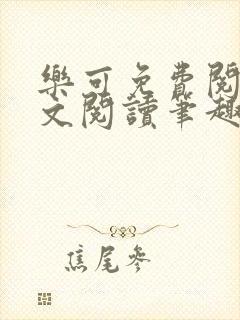 樂可免費閱
文閱讀筆趣
焦尾參